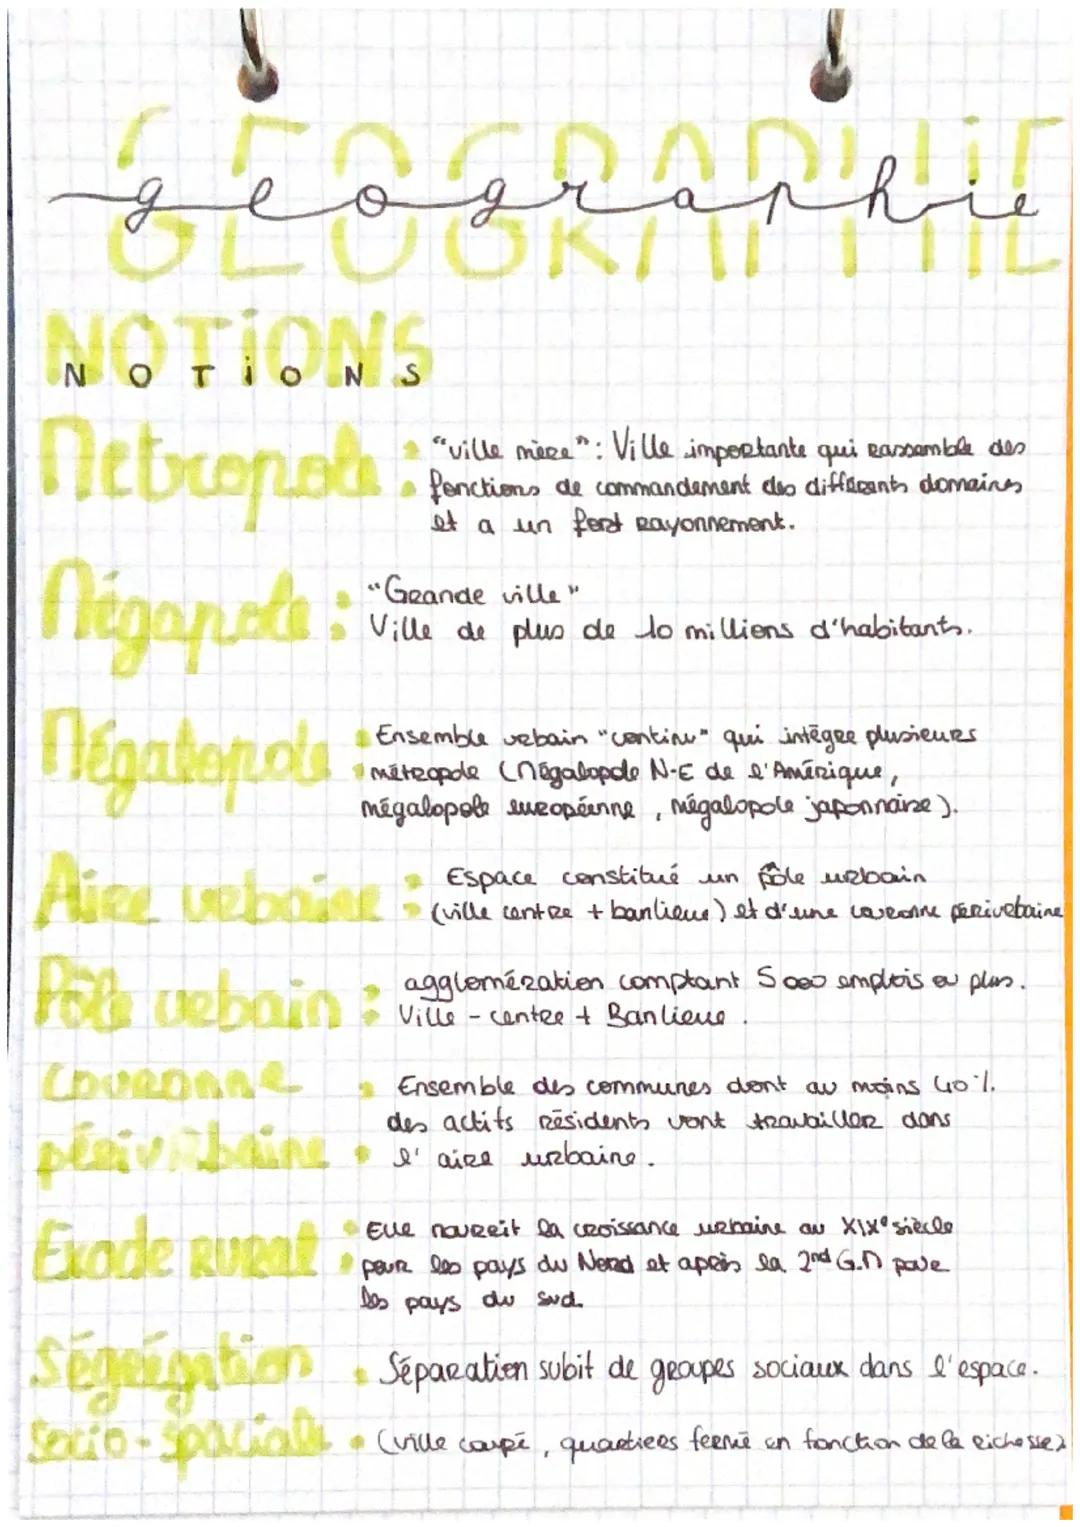 GEOGRAPHIE
geographie
NOTIONS
NOTIONS
Métropole : "ville mère" : Ville importante qui rassemble des
fonctions de commandement des différents domaines
et a un fort rayonnement.
Mégapole : "Grande ville"
Ville de plus de 10 millions d'habitants.
Mégalopole : Ensemble urbain "continu" qui intègre plusieurs
métropole (Mégalopole N-E de l'Amérique,
mégalopole européenne, mégalopole japonnaise).
Aire urbaine : Espace constitué un pôle urbain
(ville centre + banlieue) et d'une couronne périurbaine
Pôle urbain : agglomération comptant 5000 emplois ou plus.
Ville - centre + Banlieue.
Couronne
périurbaine : Ensemble des communes dont au moins 40%
des actifs résidents vont travailler dans
l'aire urbaine.
Exode rural : Elle nourrit la croissance urbaine au XIXe siècle
pour les pays du Nord et après la 2nd G.M pour
les pays du sud.
Ségrégation
socio-spaciale : Séparation subit de groupes sociaux dans l'espace.
(ville coupé, quartiers fermé en fonction de la richesse)